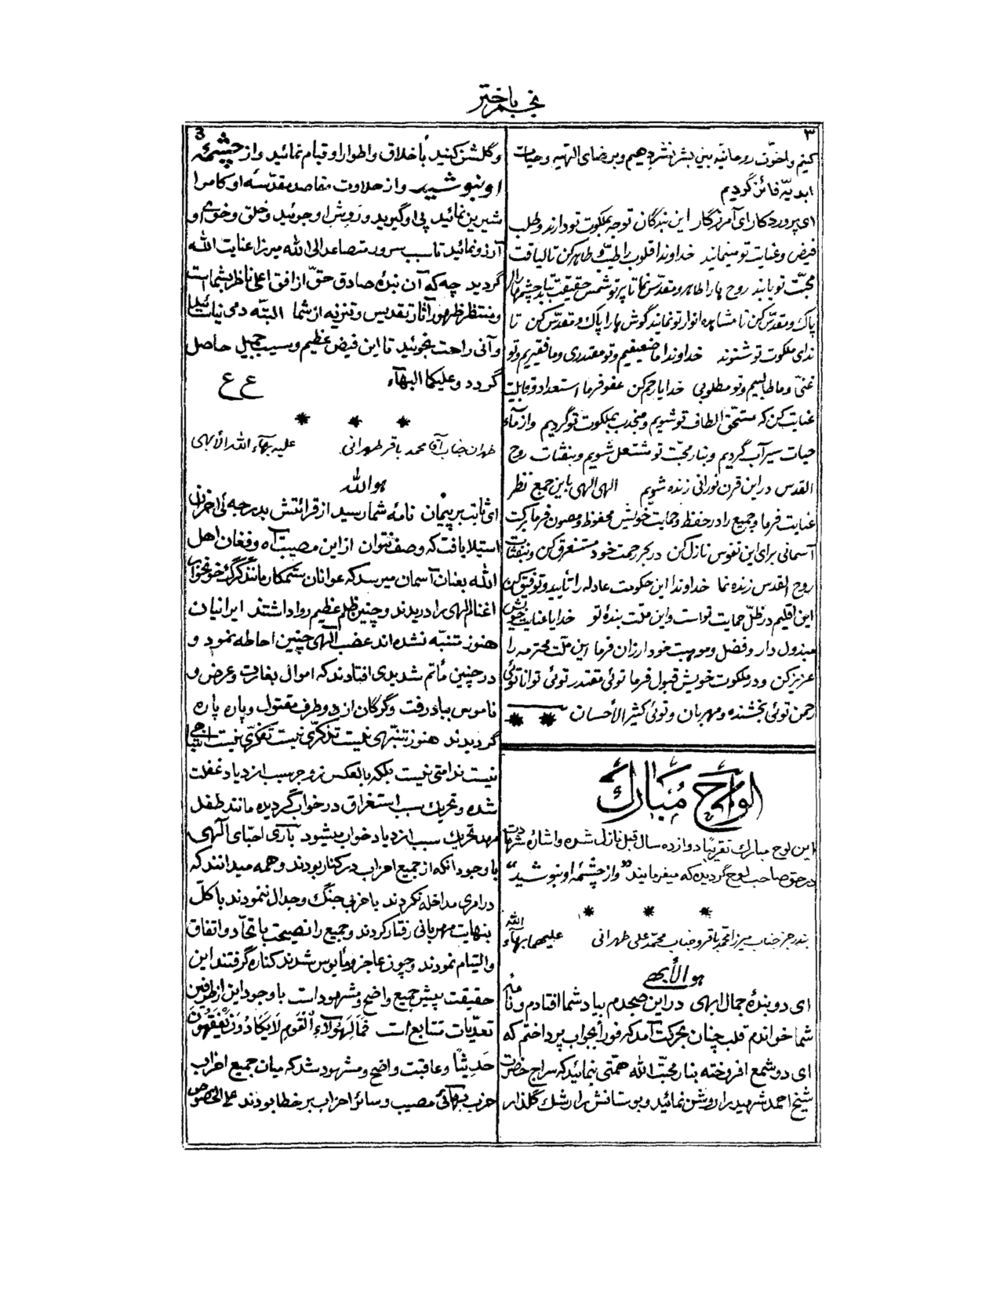 نجم باختر
۳
کنیم و اخوّت روحانیّه بین بشر نشر دهیم و برضای الهیه و حیات
ابدیّه فائز گردیم
ای پروردگار ای آمرزگار این بندگان توجه بملکوت تو دارند و طلب
فیض و عنایت تو مینمایند خداوندا قلوب را طیّب و طاهر کن تا لیاقت
محبّت تو یابند روح ها را طاهر و مقدّس نما تا پرتو شمس حقیقت یابد چشمها را
پاک و مقدّس کن تا مشاهده انوار تو نمایند گوش ها را پاک و مقدّس کن تا
ندای ملکوت تو شنوند خداوندا ما ضعیفیم و تو مقتدری و ما فقیریم و تو
غنیّ و ما طالبیم و تو مطلوبی خدایا رحم کن عفو فرما استعداد و قابلیت
عنایت کن که مستحقّ الطاف تو شویم و منجذب بملکوت تو گردیم و از ماء
حیات سیرآب گردیم و بنار محبّت تو مشتعل شویم و بنفثات روح
القدس در این قرن نورانی زنده شویم الهی الهی باین جمع نظر
عنایت فرما و جمیع را در حفظ و حمایت خویش محفوظ و مصون فرما برکت
آسمانی برای این نفوس نازل کن در بحر رحمت خود مستغرق کن و بنفثات
روح القدس زنده نما خداوندا این حکومت عادله را تأیید و توفیق کن
این اقلیم در ظلّ حمایت تو است و این ملّت بندهٔ تو خدایا عنایت خویش
مبذول دار و فضل و موهبت خود ارزان فرما این ملّت محترمه را
عزیز کن و در ملکوت خویش قبول فرما توئی مقتدر توئی توانا توئی
رحمن توئی بخشنده و مهربان و توئی کثیر الأحسان
* *
الواح مبارک
این لوح مبارک تقریباً دوازده سال قبل نازل شده و اشاره شهادت
در حق صاحب لوح گردیده که میفرمایند "و از چشمهٔ او بنوشید"
* * *
بندر جز جناب میرزا محمّد باقر و جناب محمّد علی طهرانی علیهما بهآء الله
هو الأبهی
ای دو بندهٔ جمال ابهی در این صبحدم بیاد شما افتادم و نامه
شما خواندم قلب چنان بحرکت آمد که فوراً بجواب پرداختم که
ای دو شمع افروخته بنار محبّت الله همّتی بنمائید که سراج حضرت
شیخ احمد شهید را روشن نمائید و بوستانش را رشک گلذار
3
و گلشن کنید باخلاق و اطوار او قیام نمائید و از چشمهٔ
او بنوشید و از حلاوت مقاصد مقدّسهٔ او کام را
شیرین نمائید پی او گیرید و رَوِش او جوئید و خلق و خوی او
آرزو نمائید تا سبب سرور متصاعد الی الله میرزا عنایت الله
گردید چه که آن بندهٔ صادق حقّ از افق اعلی ناظر بشما است
و منتظر ظهور آثار تقدیس و تنزیه از شما البتّه دمی نیاسائید
و آنی راحت نجوئید تا این فیض عظیم و سبب جمیل حاصل
گردد و علیکما البهآء
ع ع
* * *
طهران جناب آقا محمد باقر طهرانی علیه بهآء الله الأبهی
هو الله
ای ثابت بر پیمان نامهٔ شما رسید از قرائتش بدرجه ئی احزان
استیلا یافت که وصف نتوان از این مصیبت آه و فغان اهل
الله بعنان آسمان میرسد که عوانان ستمکار مانند گرگ خونخوار
اغنام الهی را دریدند و چنین ظلم عظیم روا داشتند ایرانیان
هنوز متنبّه نشده اند غضب الهی چنین احاطه نمود و
در چنین مأتم شدیدی افتادند که اموال بغارت و عِرض و
ناموس بباد رفت و گرگان از دو طرف مقتول و پاره پاره
گردیدند هنوز تنبّهی نیست تذکّری نیست تفکّری نیست
نیست ندامتی نیست بلکه بالعکس زوجر سبب ازدیاد غفلت
شده و تحریک سبب استغراق در خواب گردیده مانند طفل
مهد تحریک سبب ازدیاد خواب میشود باری احبای الهی
با وجود آنکه از جمیع احزاب در کنار بودند و همه میدانند که
در امری مداخله نکردند با حزبی جنگ و جدال ننمودند با کلّ
بنهایت مهربانی رفتار کردند و جمیع را نصیحت باتحاد و اتفاق
و التیام نمودند و چون عاجز و مأیوس شدند کناره گرفتند این
حقیقت پیش جمیع واضح و مشهود است با وجود این از طرفین
تعدّیات متتابع است فَمَا لِهٰؤلآءِ القَومِ لایَکادُونَ یَفقَهُونَ
حَدیثاً و عاقبت واضح و مشهود شد که میان جمیع احزاب
حزب بهائی مصیب و سائر احزاب بر خطا بودند علی الخصوص